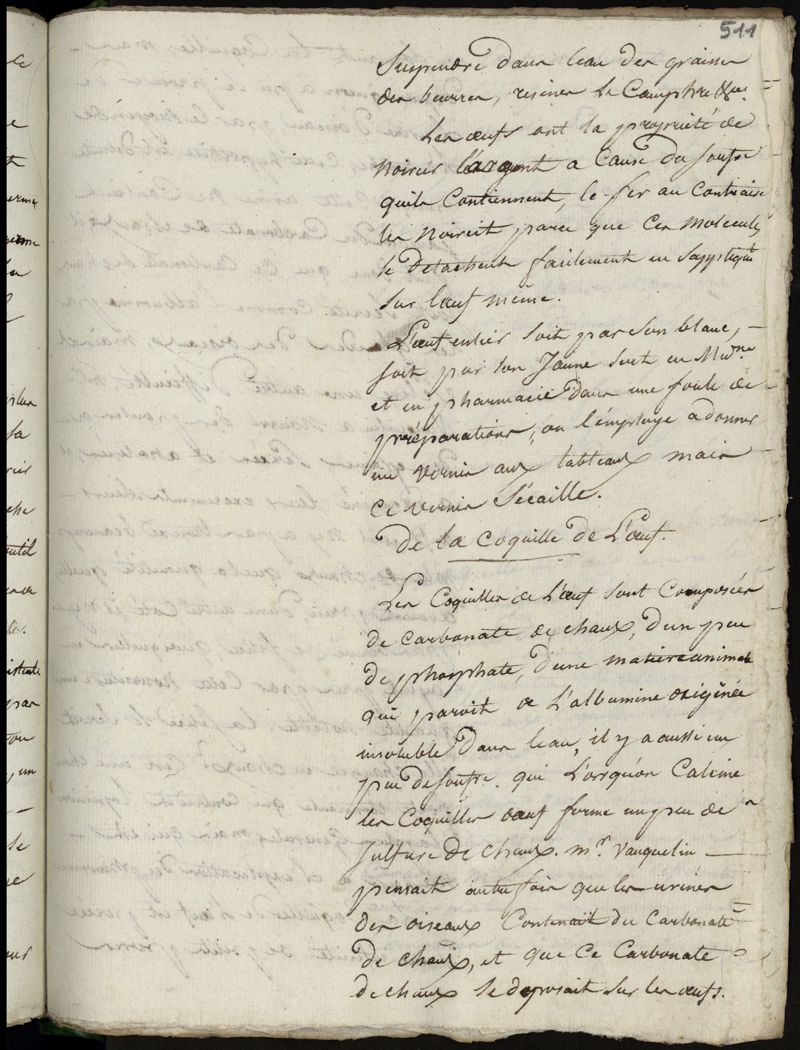 511
Suspendre dans leau des graisses
des beurres, résines le Camphre &ces
Les œufs ont la propriété de
noircir l'argent a Cause du soufre
quils Contiennent, le fer au Contraire
les noircit parce que ces molecules
se detachent facilement en
sur l'œuf même.
L'œuf entier soit par son blanc, —
soit par son Jaune sert en Mdne
et en pharmacie dans une foule de
préparations, on l'employe a donner
un vernis aux tableaux mais —
ce vernis s'écaille.
De la Coquille de L'œuf.
Les Coquilles de L'œuf sont Composées
de Carbonate de chaux, d'un peu
de phosphate, d'une matiere animale
qui paroit de L'albumine oxigénée
insoluble dans leau, il y a aussi un
peu de soufre. qui Lorsqu'on Calcine
les Coquilles d'œuf forme un peu de
sulfure de chaux. mr. Vauquelin —
pensait autrefois que les urines
des oiseaux Contenait du Carbonate
de chaux, et que ce Carbonate
de chaux se deposait sur les œufs.